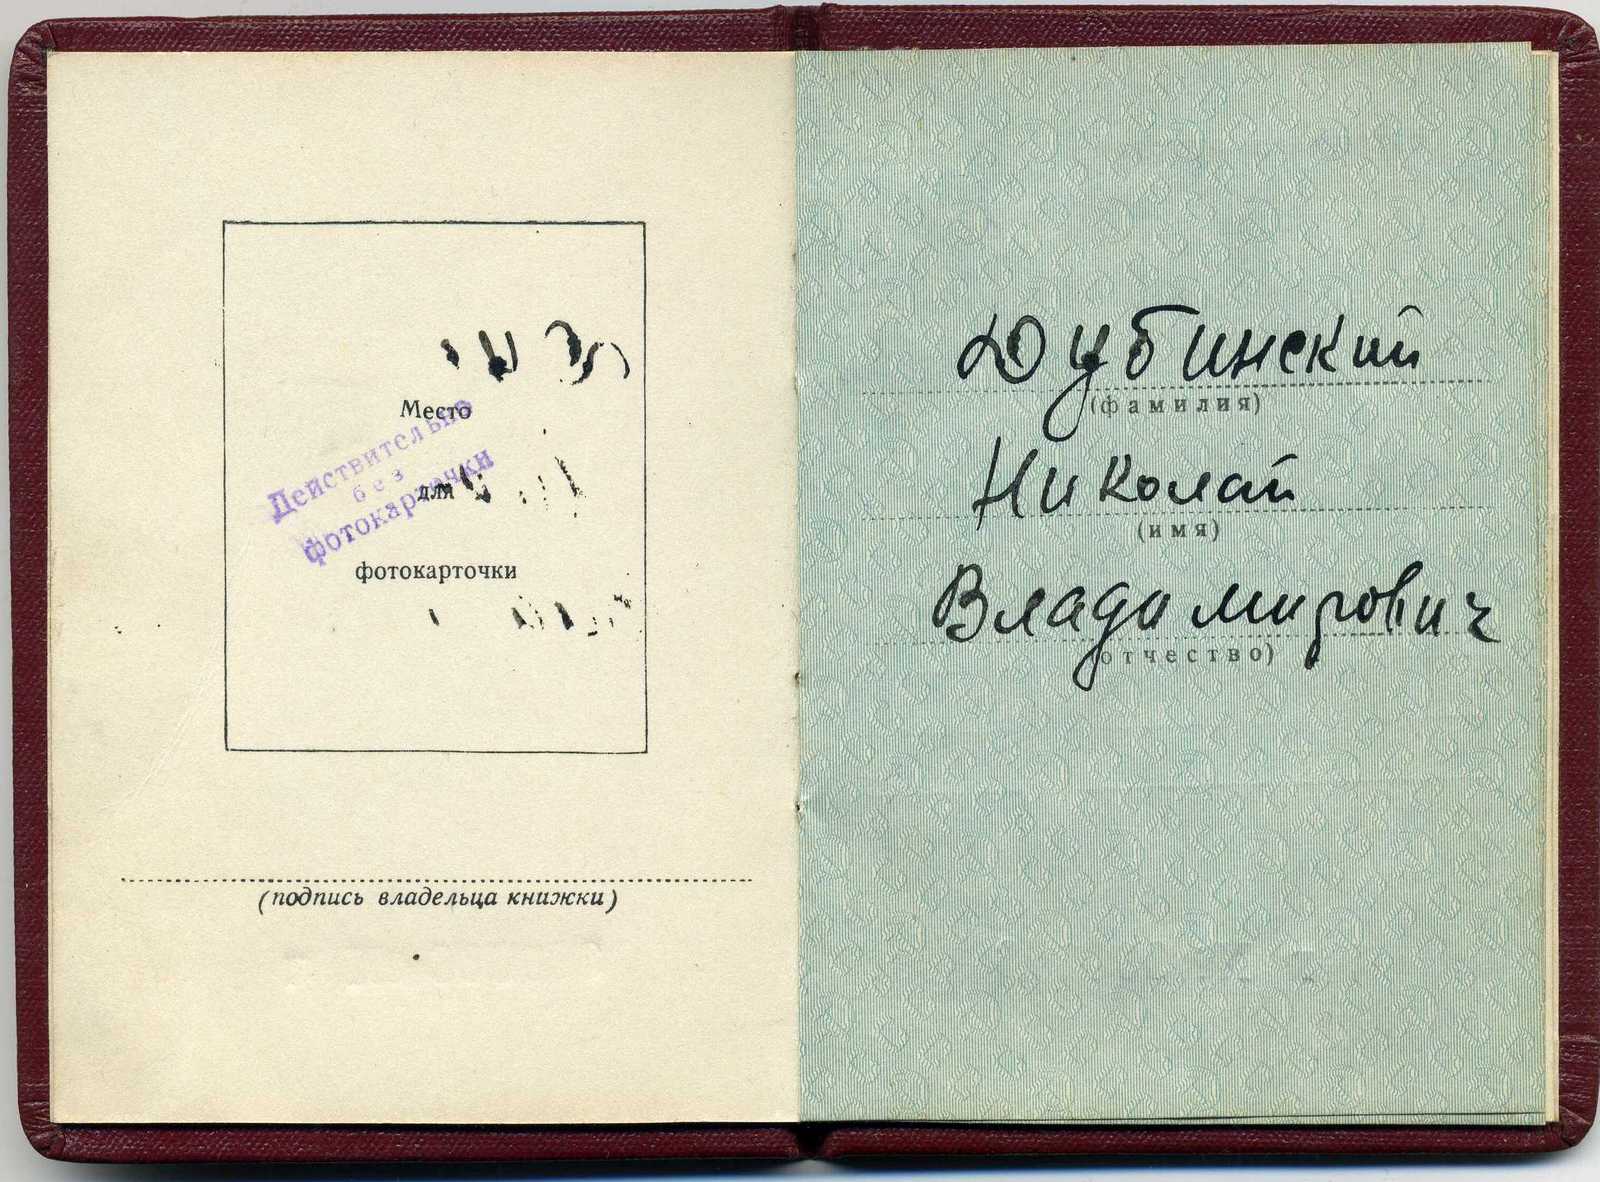 Место
для
фотокарточки
Действительно
без
фотокарточки
(подпись владельца книжки)
Дубинский
(фамилия)
Николай
(имя)
Владимирович
(отчество)